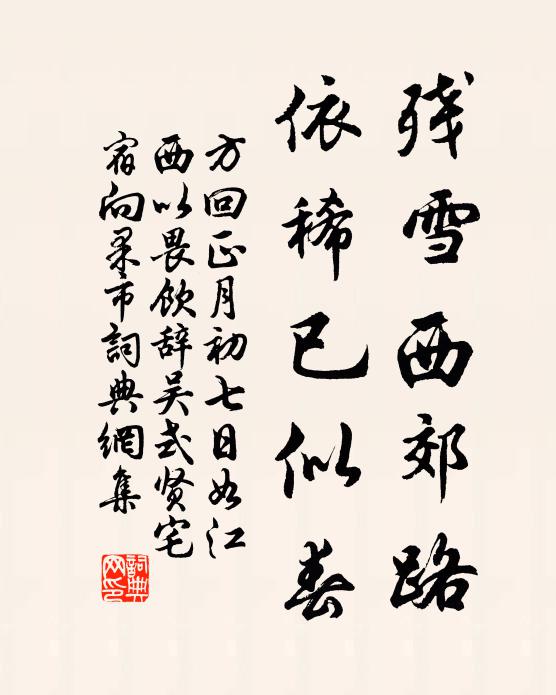 残雪西郊路
依稀已似春
方回正月初七日如江
西以畏饮辞吴式贤宅
宿向杲市詞典網集
詞典網印